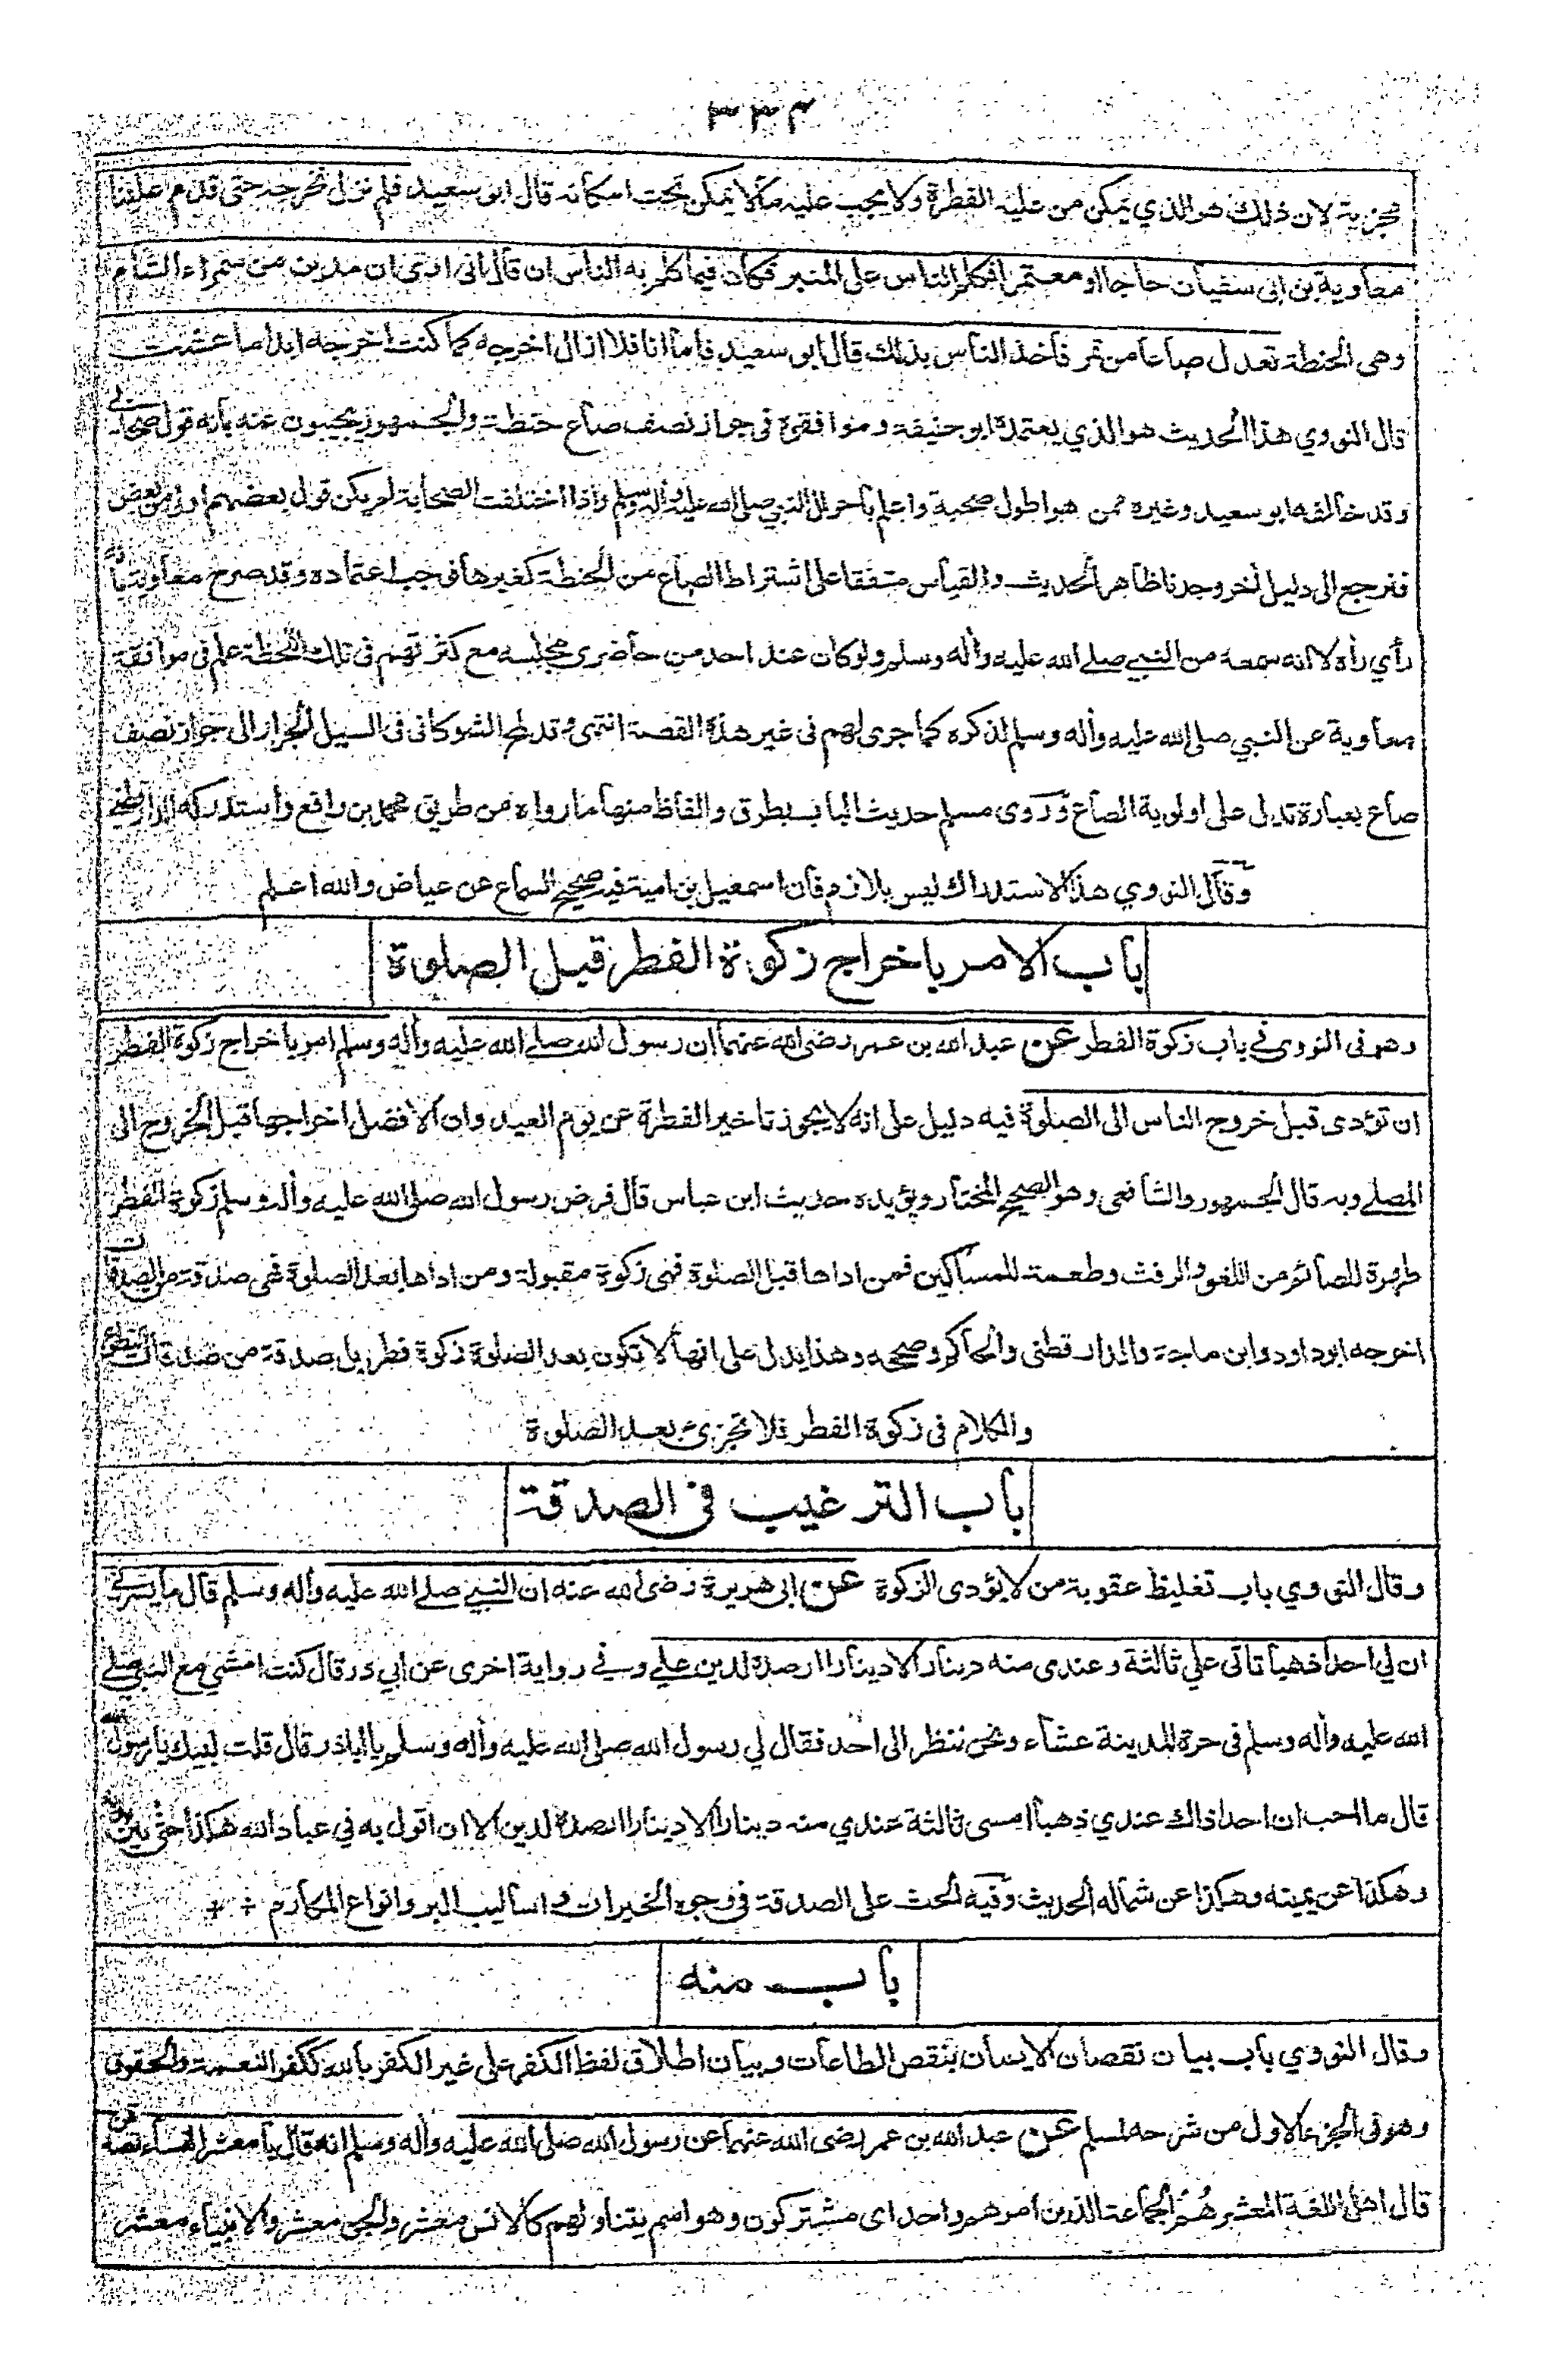 ٣٣٤
مجزية لان ذلك هو الذي يمكن من عليه الفطرة ولا يجب عليه مالا يمكن تحت امكانه قال ابو سعيد فلم نزل نخرجه حتى قدم علينا
معاوية بن ابى سفيان حاجا او معتمرا فكلم الناس على المنبر فكان فيما كلم به الناس ان قال انى ارى ان مدين من سمراء الشام
وهى الحنطة تعدل صاعا من تمر فاخذ الناس بذلك قال ابو سعيد فاما انا فلا ازال اخرجه كما كنت اخرجه ابدا ما عشت
قال النووي هذا الحديث هو الذي يعتمده ابو حنيفة وموافقوه فى جواز نصف صاع حنطة والجمهور يجيبون عنه بانه قول صحابي
وقد خالفه ابو سعيد وغيره ممن هو اطول صحبة واعلم باحوال النبي صلى الله عليه وأله وسلم واذا اختلفت الصحابة لم يكن قول بعضهم اولى من بعض
فنرجع الى دليل أخر وجدنا ظاهر الحديث والقياس متفقا على اشتراط الصاع من الحنطة كغيرها فوجب اعتماده وقد صرح معاوية بانه
رأي رأه لا انه سمعه من النبي صلى الله عليه وأله وسلم ولو كان عند احد من حاضرى مجلسه مع كثرتهم فى تلك اللحظة علم فى موافقة
معاوية عن النبي صلى الله عليه وأله وسلم لذكره كما جرى لهم فى غير هذه القصة انتهى وقد الشوكانى فى السيل الجرار الى جواز نصف
صاع بعبارة تدل على اولوية الصاع وروى مسلم حديث الباب بطرق والفاظ منها ما رواه من طريق محمد بن رافع واستدركه الدارقطني
وقال النووي هذا الاستدراك ليس بلازم فان اسمعيل بن امية صحيح السماع عن عياض والله اعلم
باب الامر باخراج زكوة الفطر قبل الصلوة
وهو فى النووى في باب زكوة الفطر عن عبد الله بن عمر رضى الله عنهما ان رسول الله صلى الله عليه وأله وسلم امر باخراج زكوة الفطر
ان تؤدى قبل خروج الناس الى الصلوة فيه دليل على انه لا يجوز تاخير الفطرة عن يوم العيد وان الافضل اخراجها قبل الخروج الى
المصلى وبه قال الجمهور والشافعى وهو الصحيح المختار ويؤيده حديث ابن عباس قال فرض رسول الله صلى الله عليه وأله وسلم زكوة الفطر
طهرة للصائم من اللغو والرفث وطعمة للمساكين فمن اداها قبل الصلوة فهى زكوة مقبولة ومن اداها بعد الصلوة فهى صدقة من الصدقات
اخرجه ابو داود وابن ماجة والدارقطنى والحاكم وصححه وهذا يدل على انها لا تكون بعد الصلوة زكوة فطر بل صدقة من صدقات التطوع
والكلام فى زكوة الفطر فلا تجزئ بعد الصلوة
باب الترغيب فى الصدقة
وقال النووي باب تغليظ عقوبة من لا يؤدى الزكوة عن ابى هريرة رضى الله عنه ان النبي صلى الله عليه وأله وسلم قال ما يسرني
ان لي احدا ذهبا تاتى علي ثالثة وعندى منه دينار الا دينارا ارصده لدين علي وفي رواية اخرى عن ابي ذر قال كنت امشي مع النبي صلى
الله عليه وأله وسلم فى حرة المدينة عشاء ونحن ننظر الى احد فقال لي رسول الله صلى الله عليه وأله وسلم يا اباذر قال قلت لبيك يا رسول الله
قال ما احب ان احدا ذاك عندي ذهبا امسى ثالثة عندي منه دينار الا دينارا ارصده لدين الا ان اقول به في عباد الله هكذا حثى بين يديه
وهكذا عن يمينه وهكذا عن شماله الحديث وفيه الحث على الصدقة فى وجوه الخيرات واساليب البر وانواع المكارم
باب منه
وقال النووي باب بيان نقصان الايمان بنقص الطاعات وبيان اطلاق لفظ الكفر على غير الكفر بالله ككفر النعمة والحقوق
وهو فى الجزء الاول من شرحه لمسلم عن عبد الله بن عمر رضى الله عنهما عن رسول الله صلى الله عليه وأله وسلم انه قال يا معشر النساء تصدقن
قال اهل اللغة المعشر هُمُ الجماعة الذين امرهم واحد اى مشتركون وهو اسم يتناولهم كالانس معشر والجن معشر والانبياء معشر